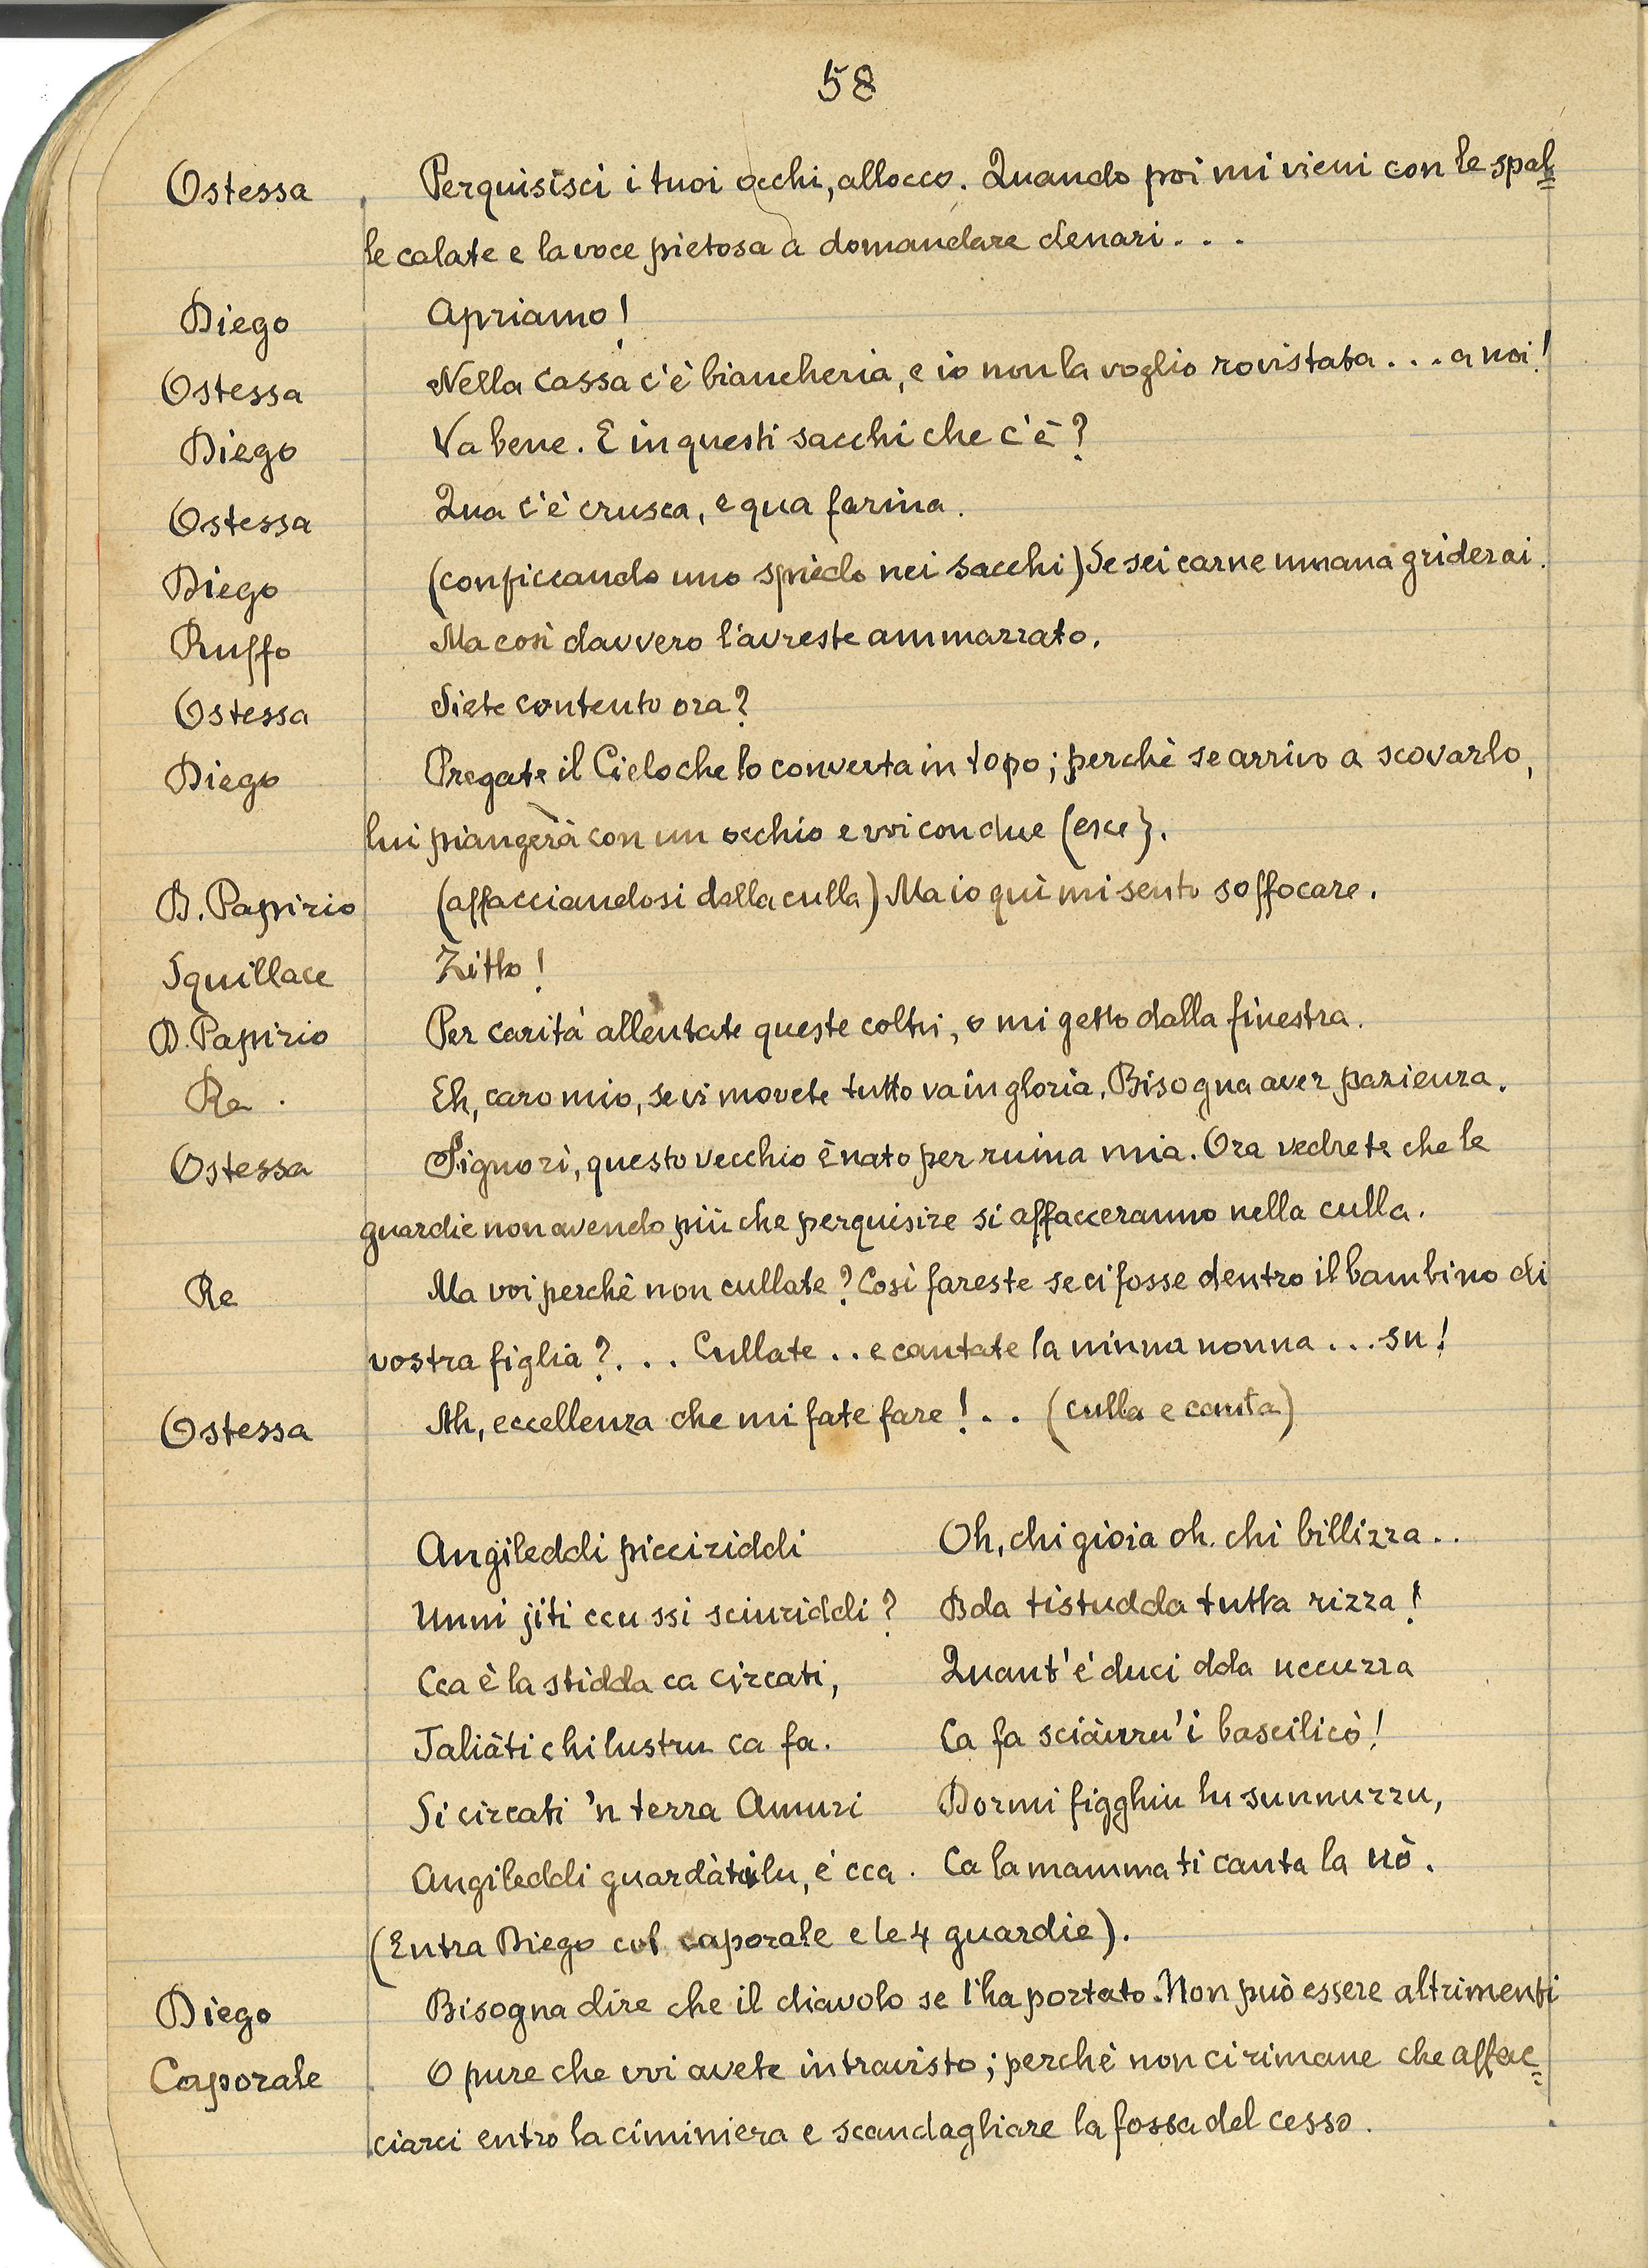 58
Ostessa Perquisisci i tuoi occhi, allocco. Quando poi mi vieni con le spal=
le calate e la voce pietosa a domandare denari...
Diego Apriamo!
Ostessa Nella cassa c'è biancheria, e io non la voglio rovistata... a noi!
Diego Va bene. E in questi sacchi che c'è?
Ostessa Qua c'è crusca, e qua farina.
Diego (conficcando uno spiedo nei sacchi) Se sei carne umana griderai.
Ruffo Ma così davvero l'avreste ammazzato.
Ostessa Siete contento ora?
Diego Pregate il Cielo che lo converta in topo; perchè se arrivo a scovarlo,
lui piangerà con un occhio e voi con due (esce).
D. Papirio (affacciandosi dalla culla) Ma io qui mi sento soffocare.
Squillace Zitto!
D. Papirio Per carità allentate queste coltri, o mi getto dalla finestra.
Re Eh, caro mio, se vi movete tutto va in gloria. Bisogna aver pazienza.
Ostessa Signori, questo vecchio è nato per ruina mia. Ora vedrete che le
guardie non avendo più che perquisire si affacceranno nella culla.
Re Ma voi perchè non cullate? Così fareste se ci fosse dentro il bambino di
vostra figlia?... Cullate.. e cantate la ninna nonna... su!
Ostessa Ah, eccellenza che mi fate fare!.. (culla e canta)
Angileddi picciriddi Oh, chi gioia oh. chi billizza..
Unni jiti ccu ssi sciuriddi? Dda tistudda tutta rizza!
Cca è la stidda ca circati, Quant'è duci dda uccuzza
Taliàti chi lustru ca fa. Ca fa sciàuru 'i bascilicò!
Si circati 'n terra Amuri Dormi figghiu lu sunnuzzu,
Angileddi guardàtilu, è cca. Ca la mamma ti canta la vò.
(Entra Diego col caporale e le 4 guardie).
Diego Bisogna dire che il diavolo se l'ha portato. Non può essere altrimenti
Caporale O pure che voi avete intravisto; perchè non ci rimane che affac=
ciarci entro la ciminiera e scandagliare la fossa del cesso.